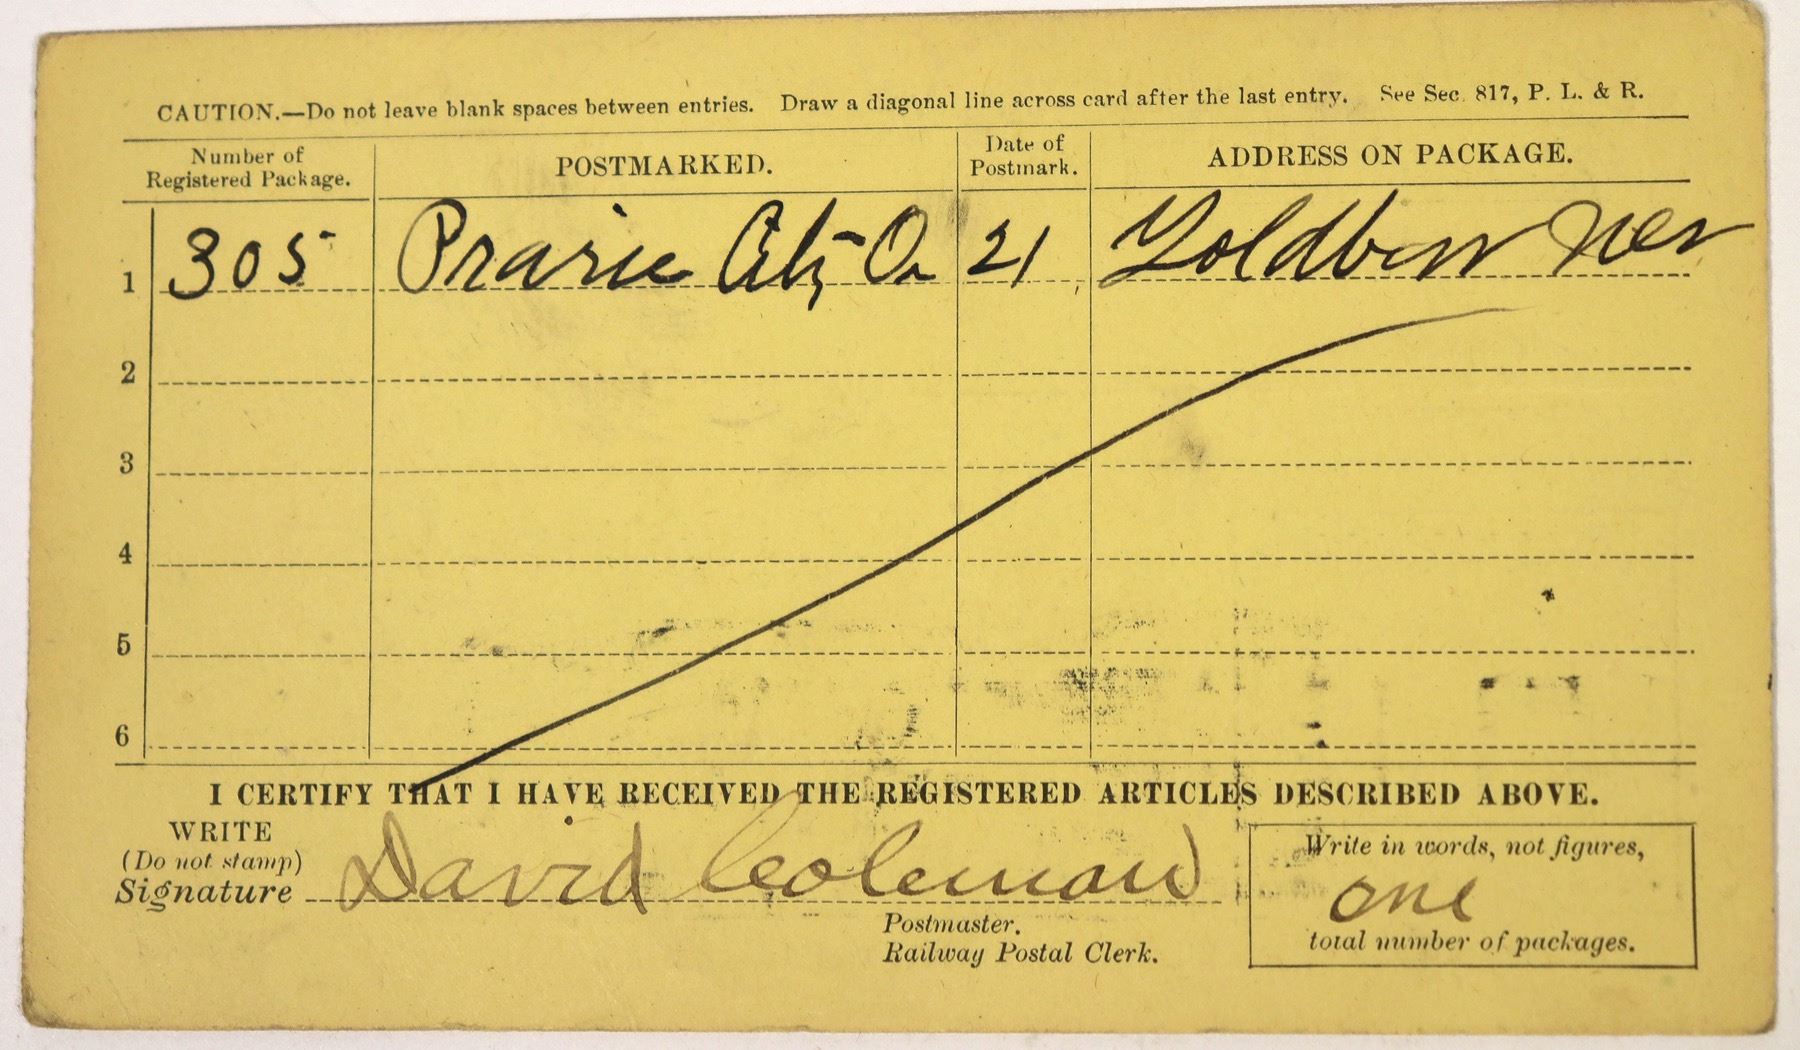 CAUTION.—Do not leave blank spaces between entries. Draw a diagonal line across card after the last entry. See Sec. 817, P. L. & R.
Number of Registered Package. POSTMARKED. Date of Postmark. ADDRESS ON PACKAGE.
1 305 Prarie City Or 21 Nev
2
3
4
5
6
I CERTIFY THAT I HAVE RECEIVED THE REGISTERED ARTICLES DESCRIBED ABOVE.
WRITE
(Do not stamp)
Signature David Coleman
Postmaster.
Railway Postal Clerk.
Write in words, not figures,
one
total number of packages.